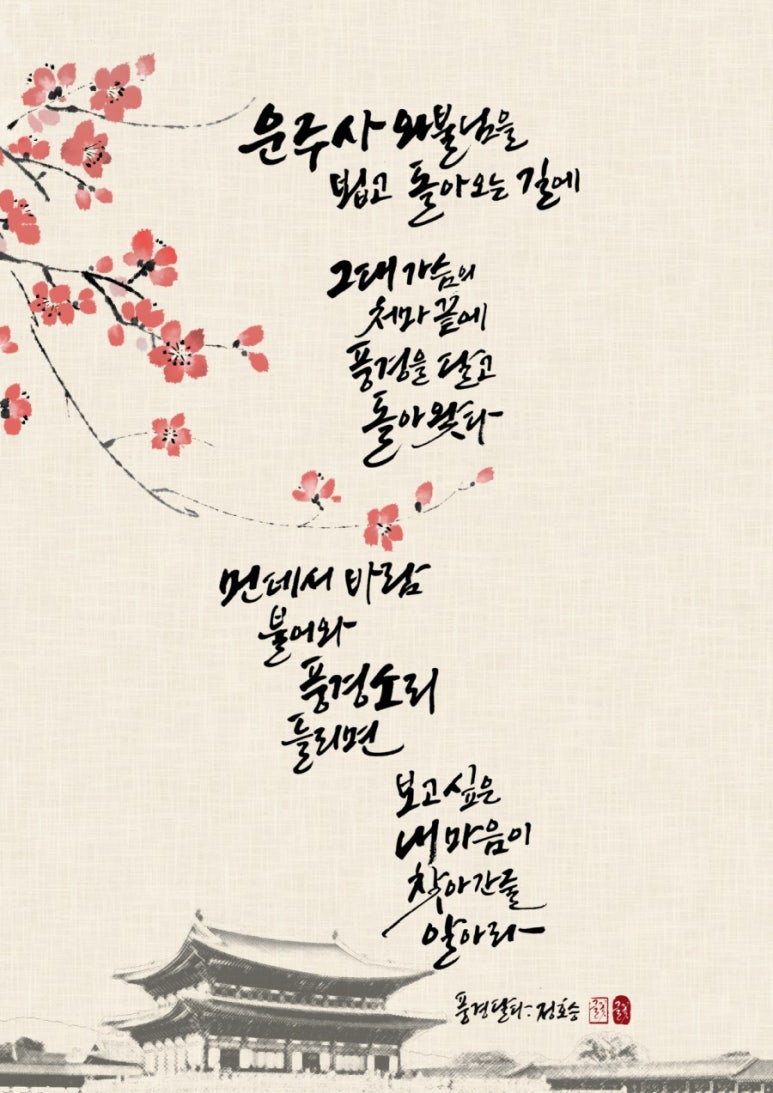 운주사 와불님을
뵙고 돌아오는 길에
그대 가슴의
처마 끝에
풍경을 달고
돌아왔다
먼데서 바람
불어와
풍경소리
들리면
보고싶은
내 마음이
찾아간줄
알아라
풍경달다 : 정호승